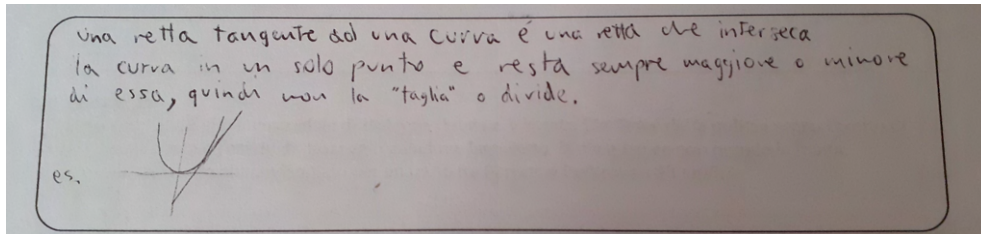 una retta tangente ad una curva é una retta che interseca
la curva in un solo punto e resta sempre maggiore o minore
di essa, quindi non la "taglia" o divide.
es.